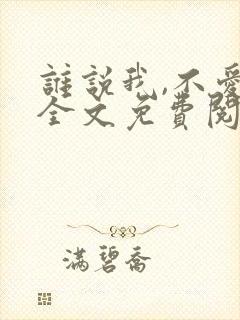 誰說我,不愛
全文免費閱
滿碧喬